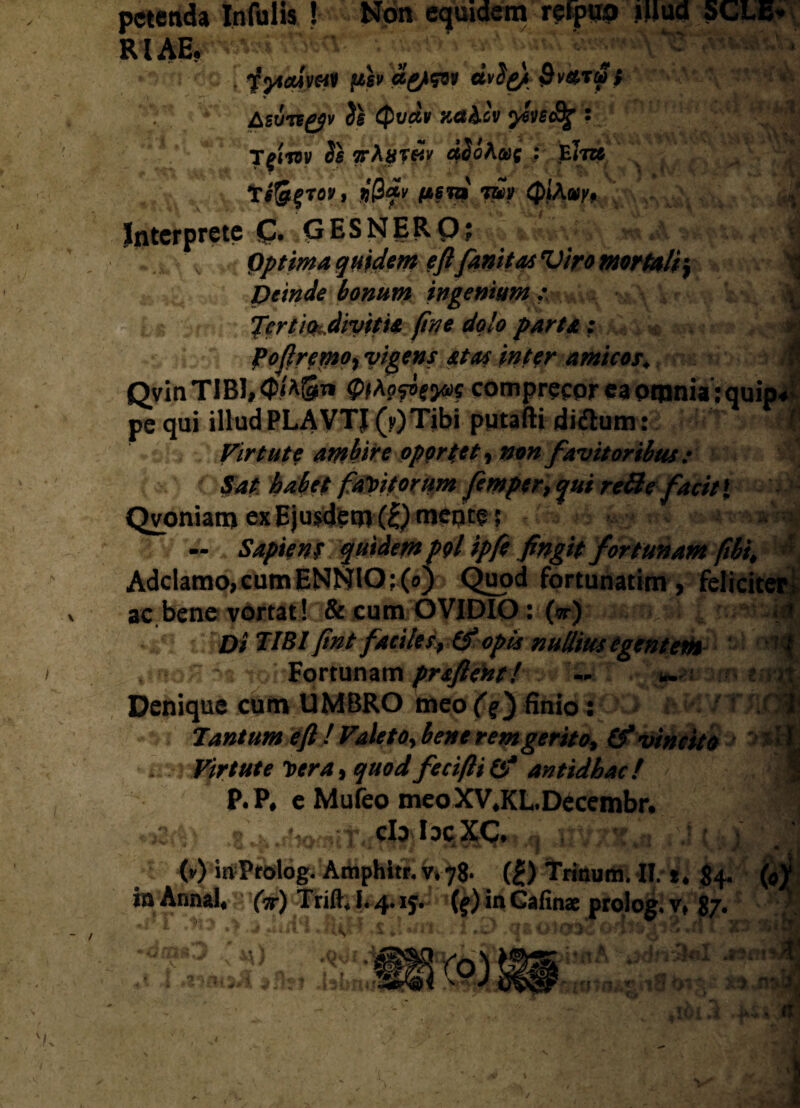 petenda Infulis ! Non equidem respuo illud SCLE-
RIAE.
Ὑγιαίνειν μὲν ἄριϛον ἀνδρὶ θνατῷ ;
Δεύτερον δὲ φυὰν καλὸν γενέσθ :
Τρίτον δὲ πλουτεῖν ἀδόλως ; Εἶτα
Τέταρτον, ἡβᾷν μετὰ τῶν φίλων.
Interprete C. GESNERO;
Optima quidem est sanitas Viro mortali;
Deinde bonum ingenium ;
Tertio divitiæ sine dolo partæ ;
Postremo, vigens ætas inter amicos.
QvinTIBI, comprecor ea omnia; quip-
pe qui illud PLAVTI (ν) Tibi putasti dictum:
Virtute ambire oportet, non favitoribus:
Sat habet favitorum semper, qui recte facit!
Qvoniam ex Ejusdem (ξ) mente ;
— Sapiens quidem pol ipse fingit fortunam sibi,
Adclamo, cum ENNIO: (ο) Quod fortunatim, feliciter
ac bene vortat! & cum OVIDIO: (π)
Di TIBI sint faciles, & opis nullius egentem
Fortunam præstent! — —
Denique cum UMBRO meo (ρ) finio :
Tantum est ! Valeto, bene rem gerito, & vincito
Virtute vera, quod fecisti & antidhac !
P. P. e Museo meo XV.KL.Decembr.
cIɔ Iɔc XC.
(ν) in Prolog. Amphitr. v. 78. (ξ) Trinum. II. 2. 84. (ο)
in Annal. (π) Trist. I. 4. 15. (ρ) in Casinæ prolog. v. 87.
(o)